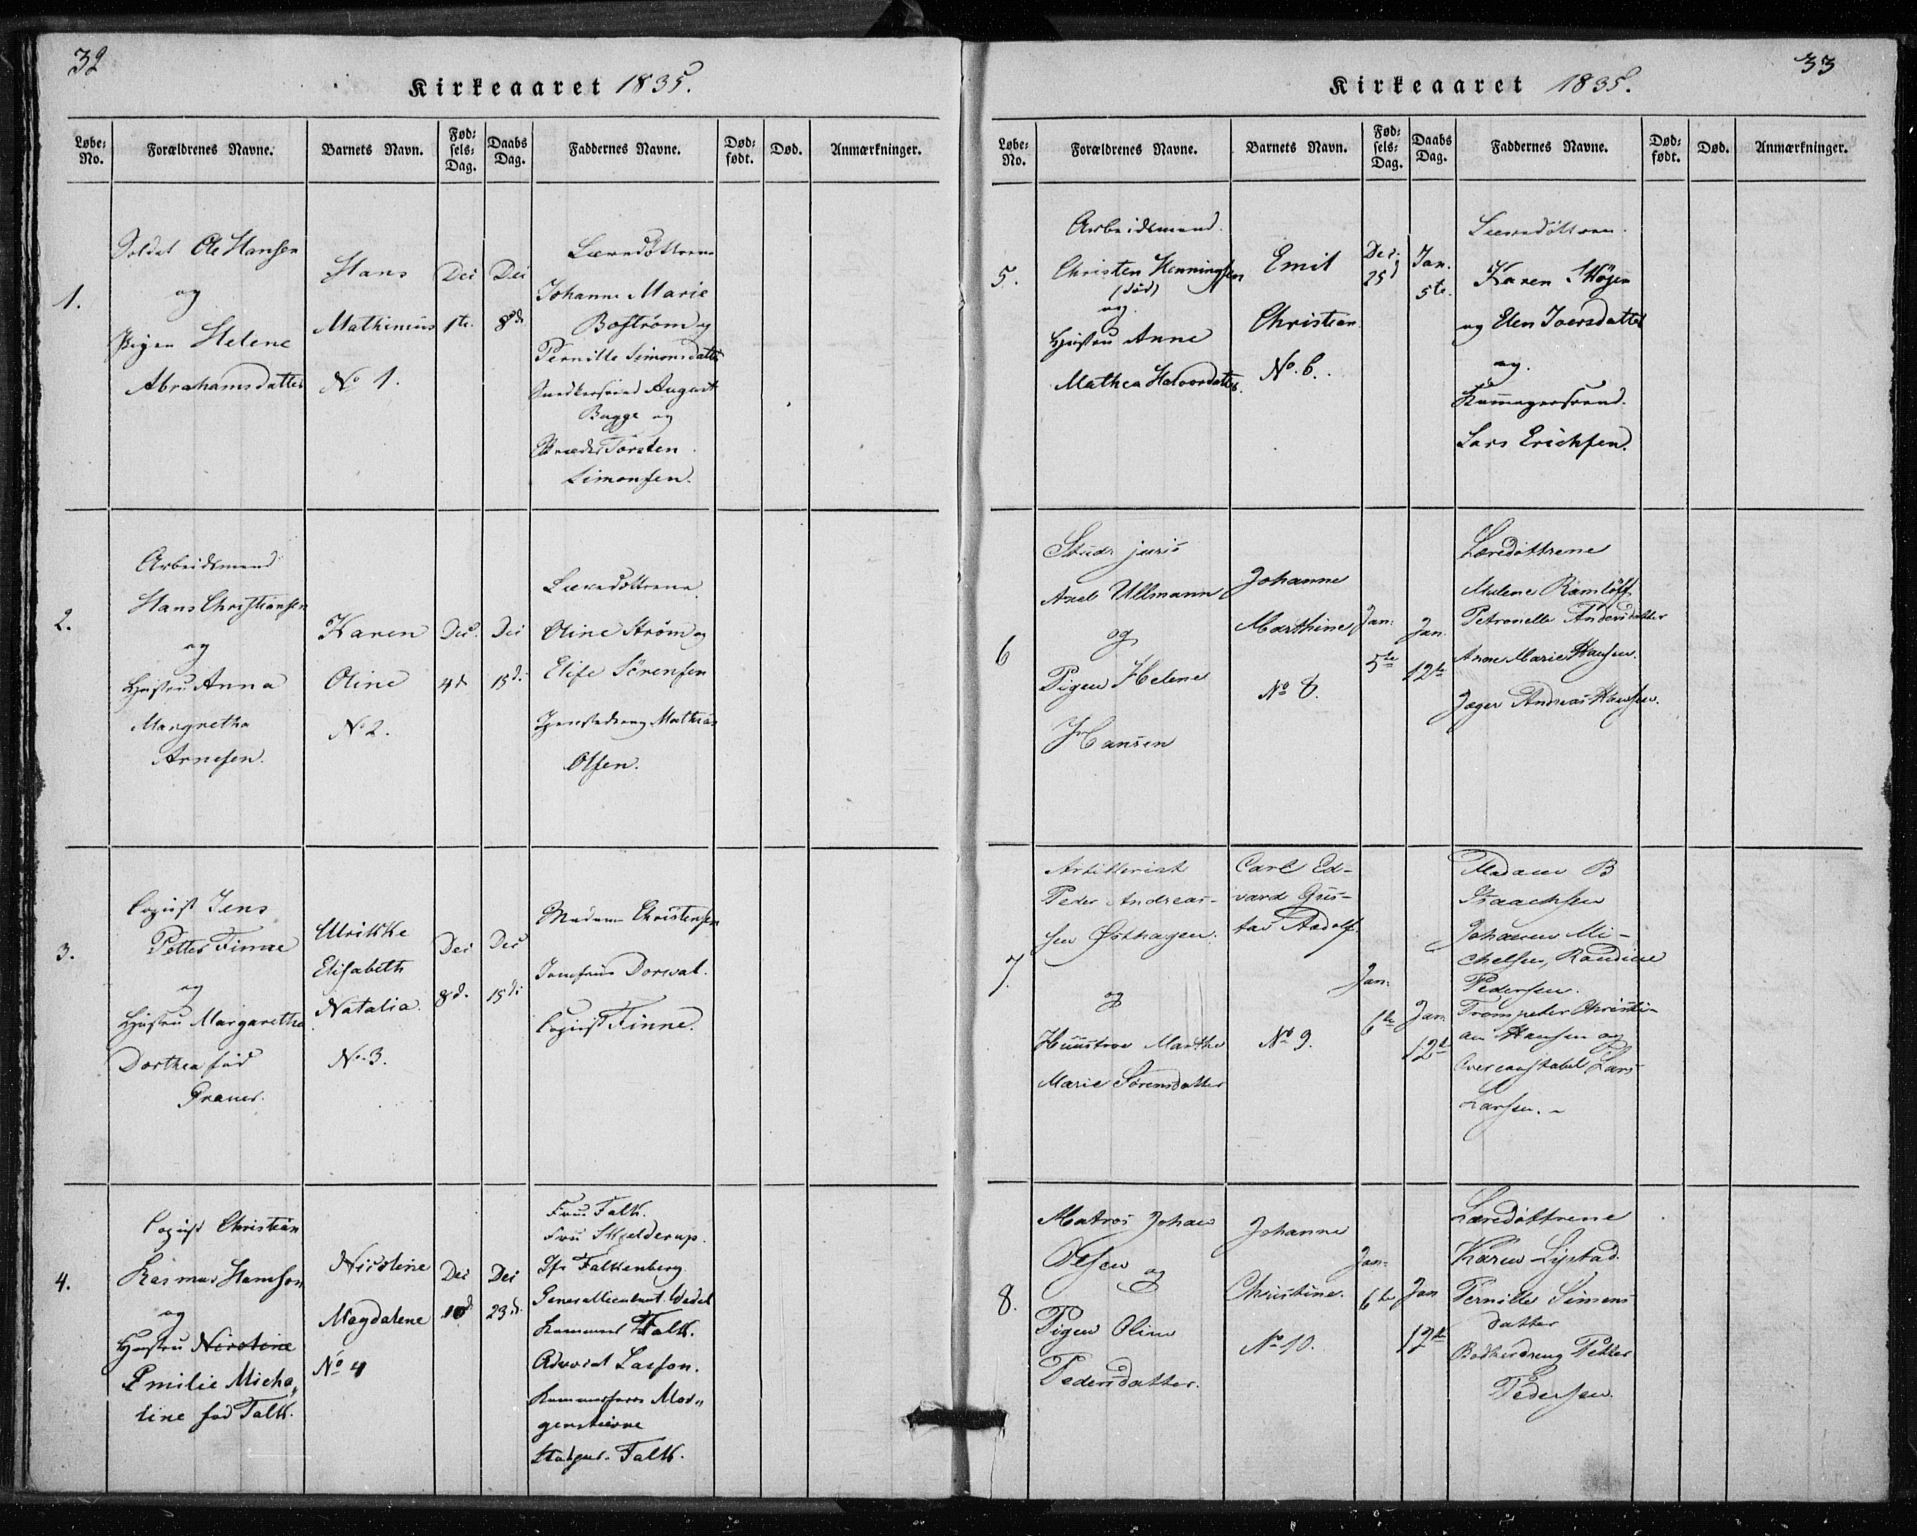 32
Kirkeaaret 1835.
Løbe-No.
Forældrenes Navne.
Barnets Navn.
Fød-sels-Dag.
Daabs Dag.
Faddernes Navne.
Død-født.
Død.
Anmærkninger.
1.
Soldat Ole Hansen
og
Pigen Helene
Abrahamsdatter
Hans
Mathinius
No 1.
Dec
1te.
Dec
8d.
Læredøttrene
Johanne Marie
Boström og
Pernille Simonsdatter
Snedkersvend August
Bagge og
Torsten
Simonsen.
2.
Arbeidsmand
Hans Christiansen
og
Hustru Anna
Margretha
Arnesen.
Karen
Oline
No 2.
Dec.
4d.
Dec
15d.
Læredøttrene
Oline Strøm og
Elise Sörensen
Mathias
Olsen.
3.
Copiist Jens
Petter Finne
og
Hustru Margaretha
Dorthea fød
Ulrikke
Elisabeth
Natalia.
No 3.
Dec
8d.
Dec
15d.
Madame Christensen
Jomfrue
Copiist Finne.
4.
Copiist Christian
Rasmus Hansson
og
Hustru Nicoline
Emilie Micha„
line fød Falk.
Nicoline
Magdalene
No 4
Dec
10d
Dec
23d.
Frue Falk.
Frue Skjelderup.
Jfr Falkenberg
Generallieutnant Wedel
Falk.
Advocat Lasson.
Mor„
genstierne
Falk.
33
Kirkeaaret 1835.
Løbe-No.
Forældrenes Navne.
Barnets Navn.
Fød-sels-Dag.
Daabs Dag.
Faddernes Navne.
Død-født.
Død.
Anmærkninger.
5.
Arbeidsmand.
Christen Henningsen
(død)
og.
Hustru Anne
Mathea Halvordatter.
Emil
Christian
No. 6.
Dec.
25d
Jan.
5te.
Læredøttrene.
Karen
og Elen Iversdatter
og.
Lars Erichsen.
6
Stud: juris
Axel Ullmann
og
Pigen Helene
Hansen
Johanne
Marthine
No 8.
Jan.
5te
Jan.
12te
Læredöttrene
Milene Ramlöff.
Petronelle Andersdatter
Anne Marie Hansen.
Jæger Andreas Hansen.
7.
Artillerist
Peder Andreas-
sen Østhagen.
og
Huustroe Marthe
Marie Sörensdatter
Carl Ed-
vard Gus-
tav Aadolf.
No 9.
Jan.
6te
Jan.
12te
Madame B
Isaachsen
Johanne Mi-
chelsen, Randine
Pedersen.
Trompeter Christi-
an Hansen og
Overconstabel Lars
Larsen.
8.
Matros Johan
Olsen
og
Pigen Oline
Pedersdatter.
Johanne
Christine.
No 10.
Jan.
6te
Jan
12te
Læredöttrene
Karen Lystad.
Pernille Simons
datter
Bødkerdreng Petter
Pedersen.